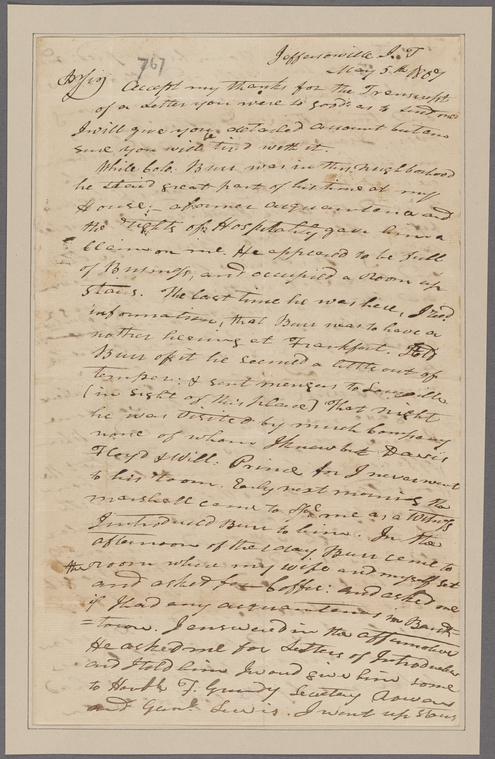 767
Jeffersonville I. T
May 5th 1807
Dr Sir
Accept my thanks for the Transcript
of a Letter you were so good as to send me
I will give you a detailed account but am
sure you will tire'd with it.
While Colo. Burr was in this Neighborhood
he staied great part of his time at my
House; a former acquaintance and
the rights of Hospitality gave him a
Claim on me. He appeared to be full
of Business, and occupied a Room up
stairs. The last time he was here, I
information, that Burr was to have a
nother hearing at Frankfort. I told
Burr of it he seemed a little out of
temper: & sent mengers to Louisville
(in sight of this place) That night
he was Visited by much Company
none of whom I knew but Davis
Floyd & Will: Prince for I never went
to his Room. Early next morning the
marshall came to me as a Witness
I introduced Burr to him. In the
afternoon of the day, Burr came to
the room where my wife and myself set
and asked for Coffee: and asked me
if I had any acquaintances in Bards=
=town. I answered in the affirmative
He asked me for Letters of Introduction
and I told him I would give him some
to Honble F. Grundy Secretary Rowan
and Genl. Lewis. I went up stairs